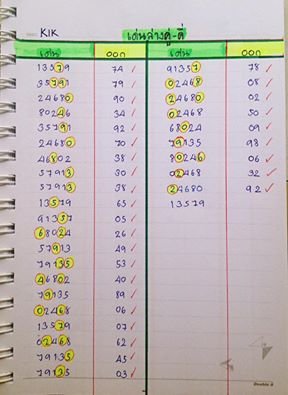 KIK เด่นล่างคู่-คี่
เด่น ออก เด่น ออก
13579 74 ✓ 91357 78 ✓
35791 79 ✓ 02468 08 ✓
24680 90 ✓ 24680 02 ✓
80246 34 ✓ 02468 50 ✓
35791 92 ✓ 68024 09 ✓
24680 70 ✓ 79135 98 ✓
46802 38 ✓ 80246 06 ✓
57913 30 ✓ 02468 32 ✓
57913 38 ✓ 24680 92 ✓
13579 65 ✓ 13579
91357 05 ✓
68024 26 ✓
57913 49 ✓
79135 53 ✓
46802 40 ✓
79135 89 ✓
02468 06 ✓
13579 07 ✓
02468 62 ✓
79135 45 ✓
79135 03 ✓
Double A